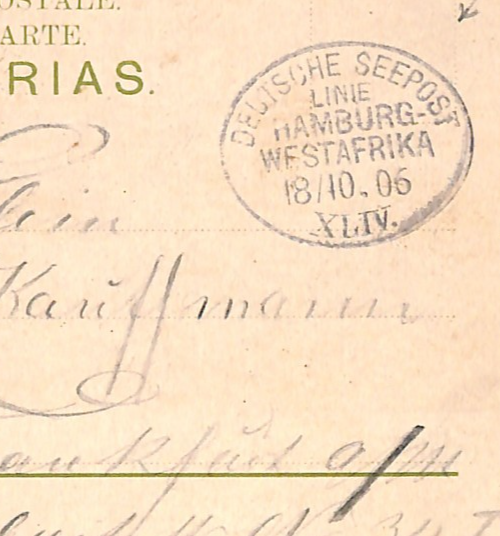 OSTALE.
ARTE.
RIAS.
DEUTSCHE SEEPOST
LINIE
HAMBURG-
WESTAFRIKA
18/10.06
XLIV.
Kauffmann
ankfurt a/M